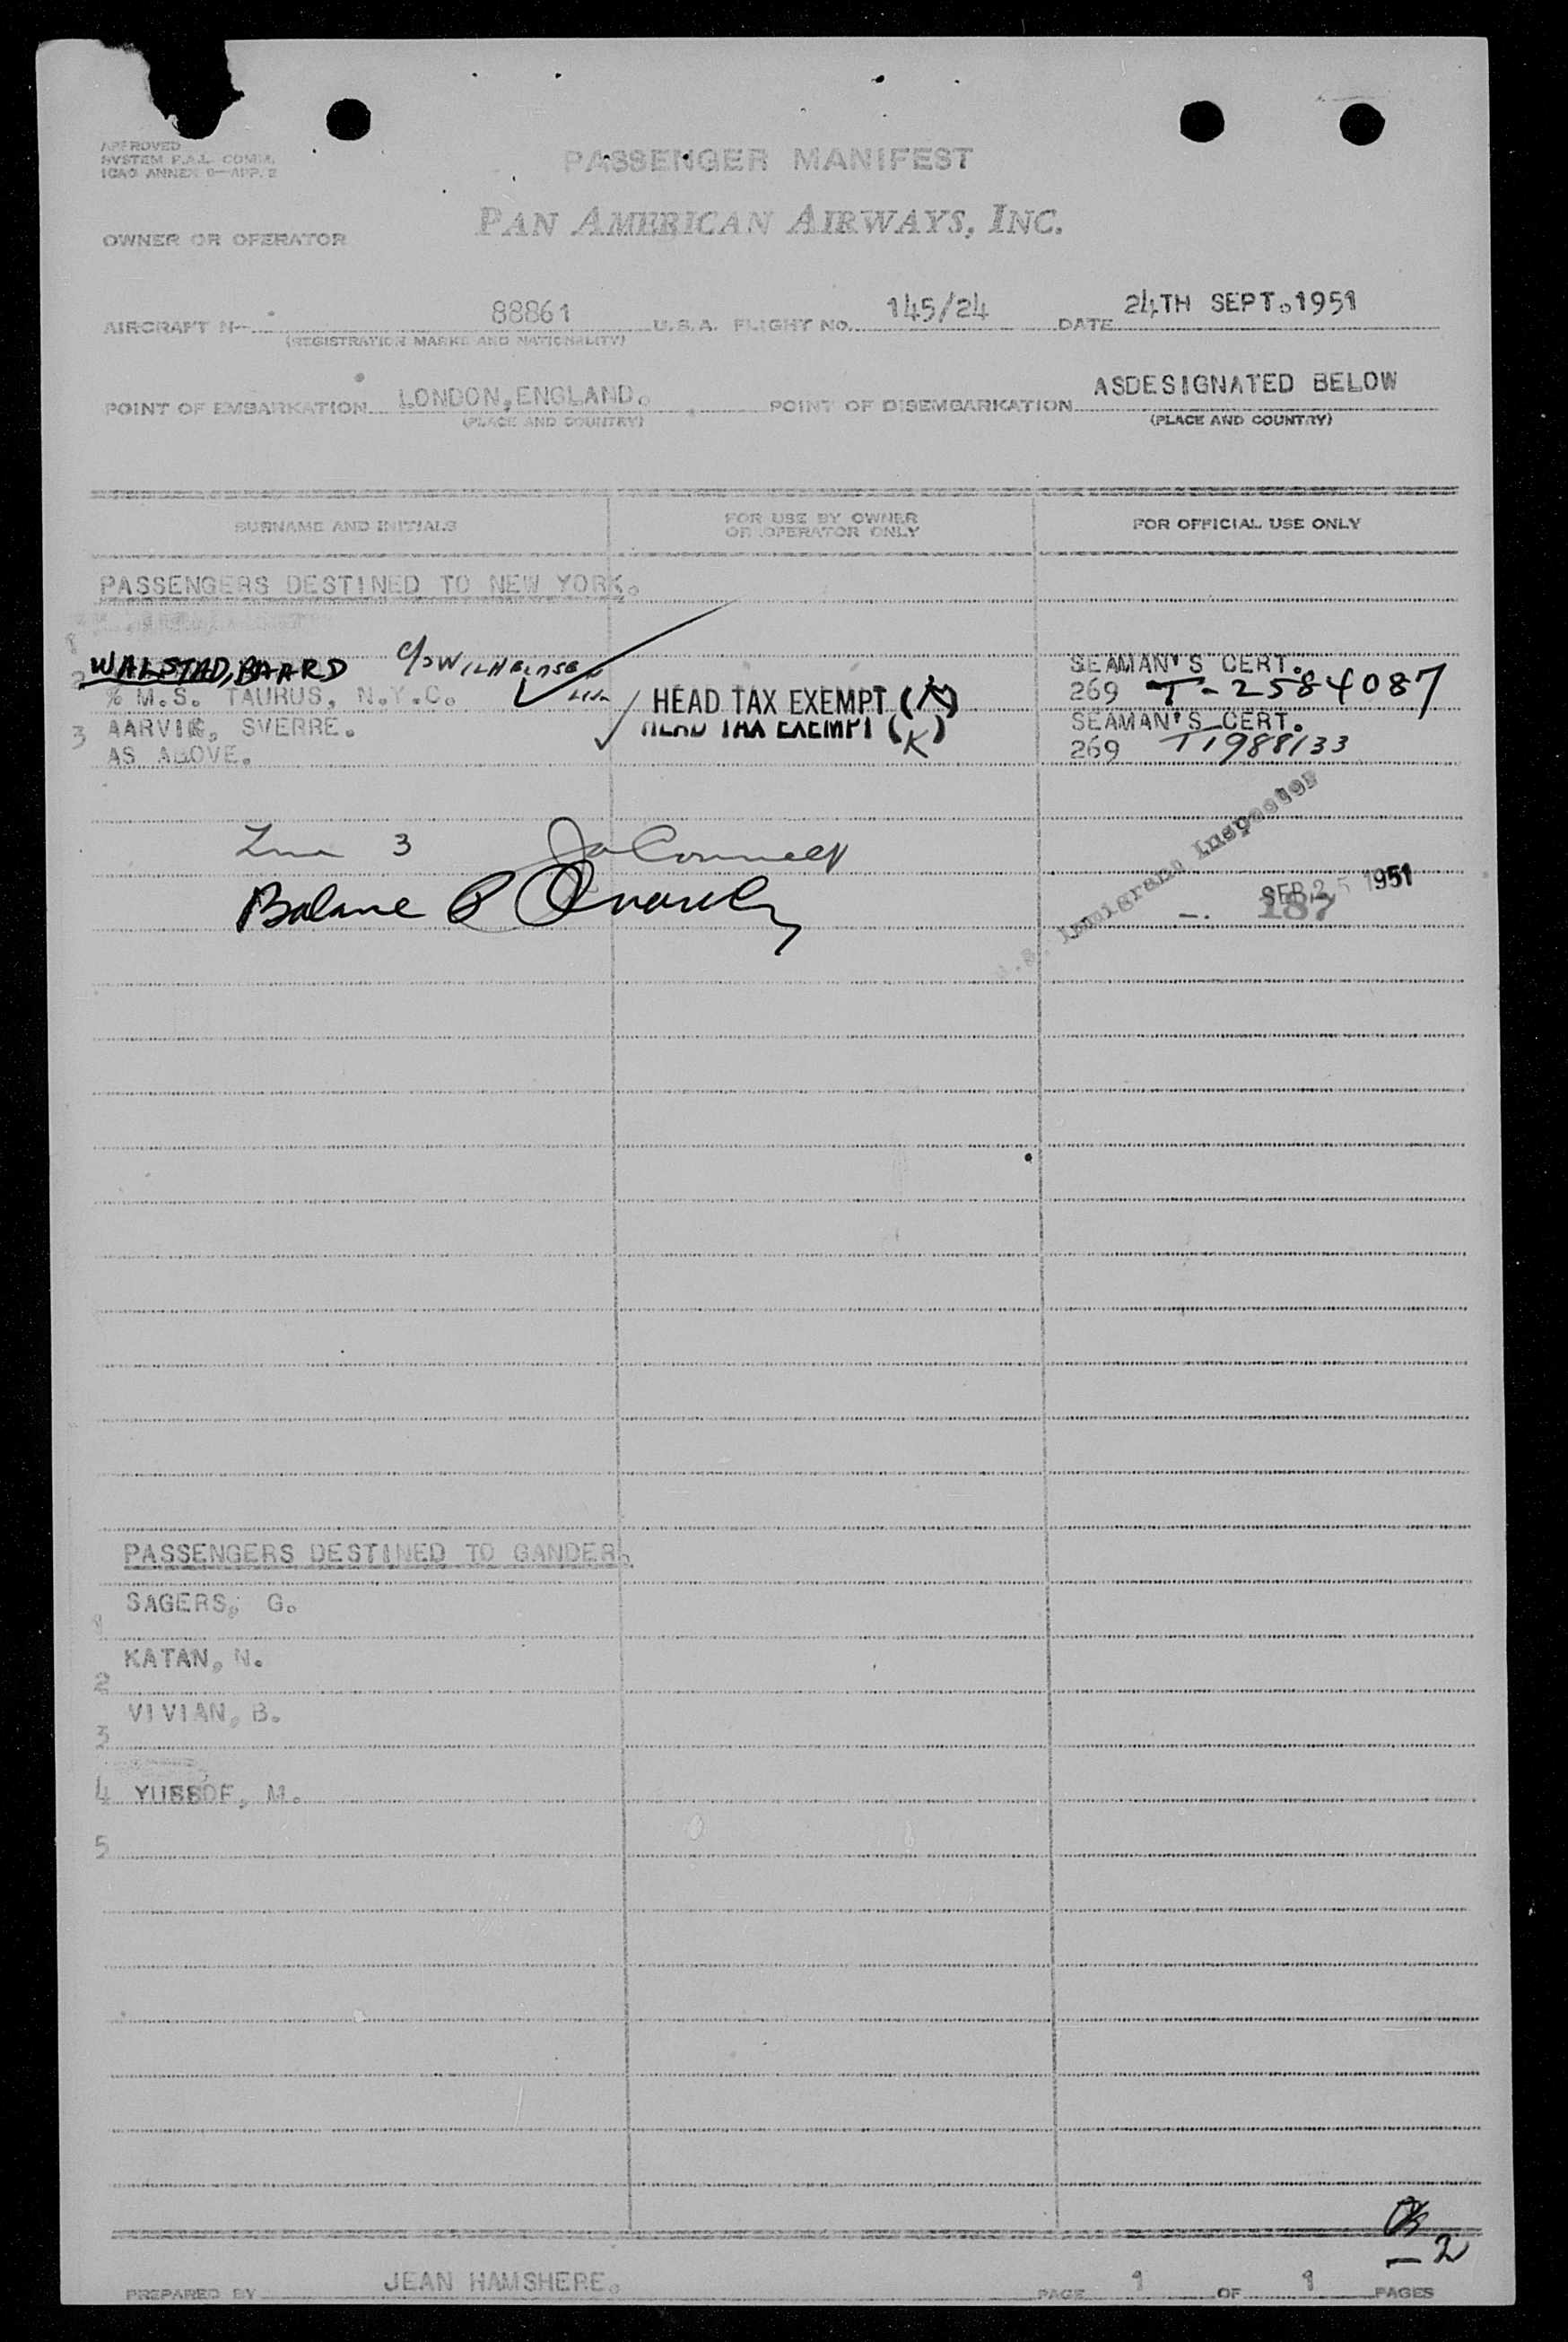 APPROVED
SYSTEM F.A.L. COMM.
ICAO ANNEX 9—APP. 2
PASSENGER MANIFEST
PAN AMERICAN AIRWAYS, INC.
OWNER OR OPERATOR
AIRCRAFT N- 88861 U.S.A. FLIGHT NO. 145/24 DATE 24TH SEPT.1951
(REGISTRATION MARKS AND NATIONALITY)
POINT OF EMBARKATION LONDON,ENGLAND. POINT OF DISEMBARKATION ASDESIGNATED BELOW
(PLACE AND COUNTRY) (PLACE AND COUNTRY)
SURNAME AND INITIALS FOR USE BY OWNER OR OPERATOR ONLY FOR OFFICIAL USE ONLY
PASSENGERS DESTINED TO NEW YORK.
1
2 WALSTAD, BAARD C/O WILHELMSEN SEAMAN'S CERT.
% M.S. TAURUS, N.Y.C. HEAD TAX EXEMPT (K) 269 T-2584087
3 AARVIK, SVERRE. HEAD TAX EXEMPT (K) SEAMAN'S CERT.
AS ABOVE. 269 T1988133
Line 3
Balance
U.S. Immigrant Inspector
SEP 25 1951
187
PASSENGERS DESTINED TO GANDER.
SAGERS, G.
1
KATAN, N.
2
VIVIAN, B.
3
4 YUSSOF, M.
5
— 2
PREPARED BY JEAN HAMSHERE. PAGE 1 OF 1 PAGES